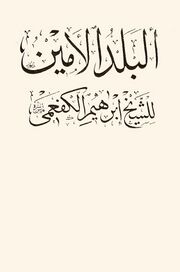 البلد الأمين
للشيخ إبراهيم الكفعمي